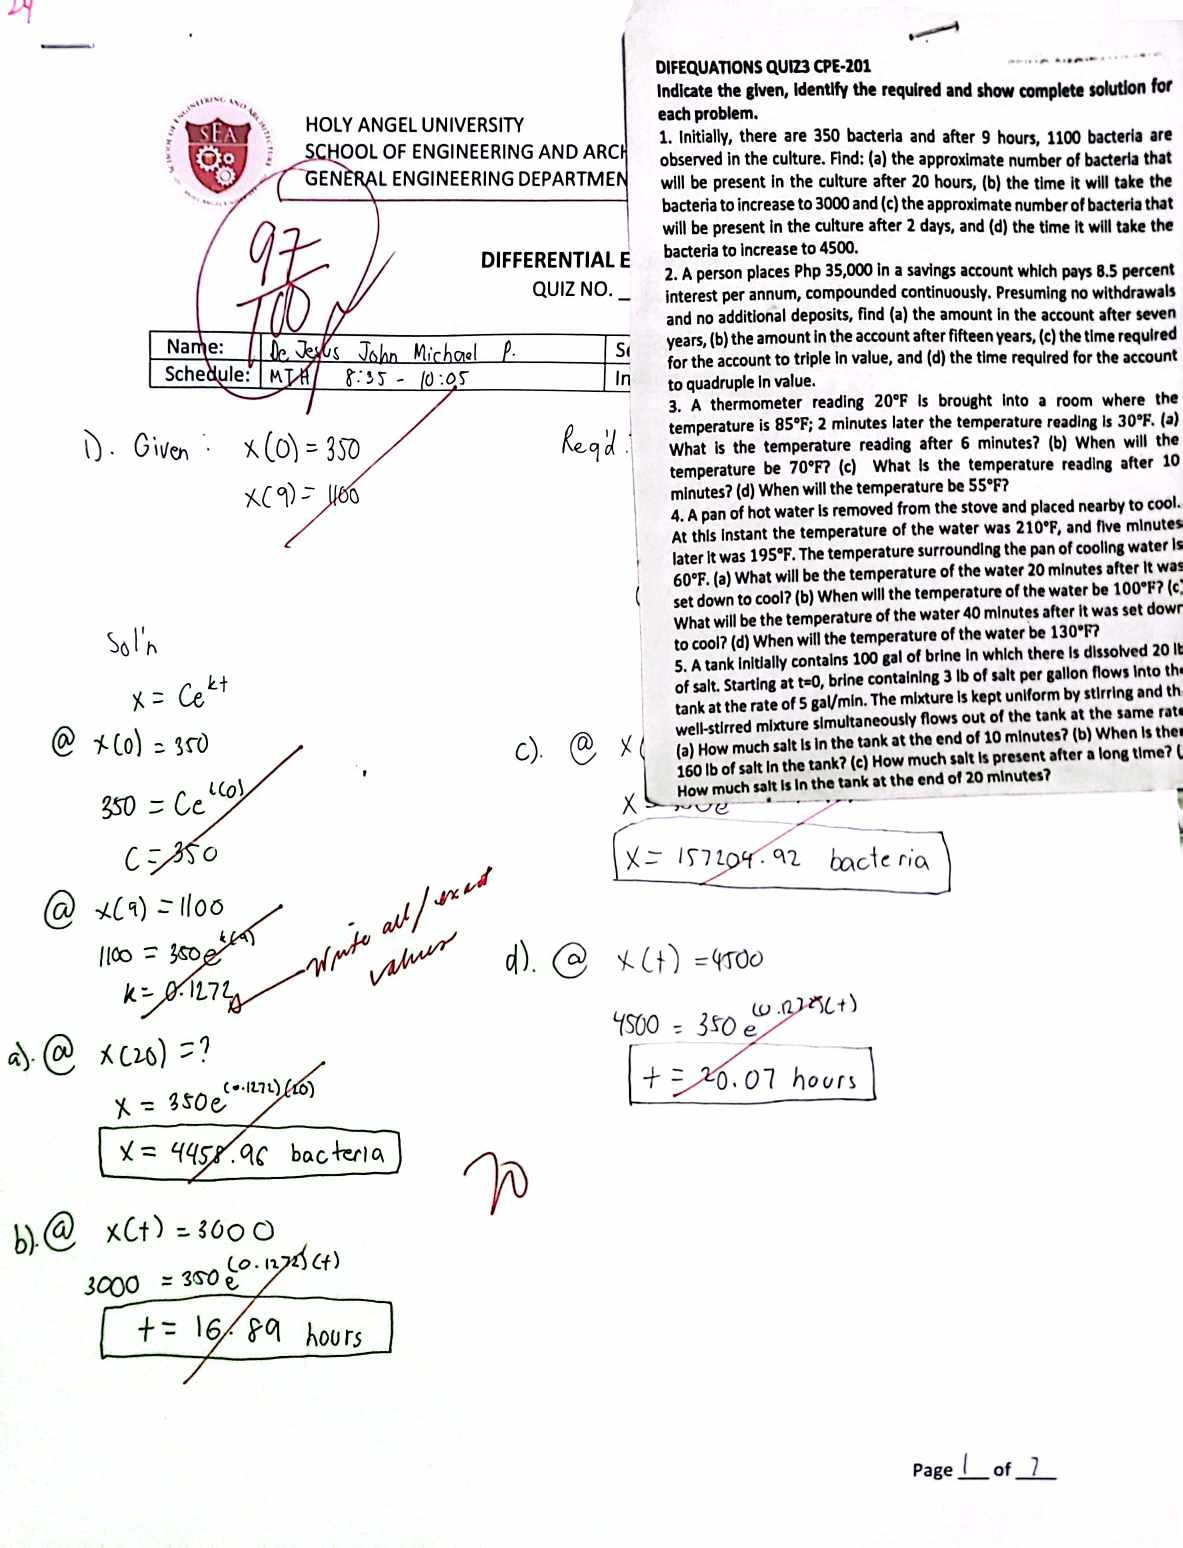 24
HOLY ANGEL UNIVERSITY
SCHOOL OF ENGINEERING AND ARCH
GENERAL ENGINEERING DEPARTMEN
SEA
97
100
DIFFERENTIAL E
QUIZ NO. _
Name: De Jesus John Michael P.
Schedule: MTH 8:35 - 10:05
In
DIFEQUATIONS QUIZ3 CPE-201
Indicate the given, identify the required and show complete solution for
each problem.
1. Initially, there are 350 bacteria and after 9 hours, 1100 bacteria are
observed in the culture. Find: (a) the approximate number of bacteria that
will be present in the culture after 20 hours, (b) the time it will take the
bacteria to increase to 3000 and (c) the approximate number of bacteria that
will be present in the culture after 2 days, and (d) the time it will take the
bacteria to increase to 4500.
2. A person places Php 35,000 in a savings account which pays 8.5 percent
interest per annum, compounded continuously. Presuming no withdrawals
and no additional deposits, find (a) the amount in the account after seven
years, (b) the amount in the account after fifteen years, (c) the time required
for the account to triple in value, and (d) the time required for the account
to quadruple in value.
3. A thermometer reading 20°F is brought into a room where the
temperature is 85°F; 2 minutes later the temperature reading is 30°F. (a)
What is the temperature reading after 6 minutes? (b) When will the
temperature be 70°F? (c) What is the temperature reading after 10
minutes? (d) When will the temperature be 55°F?
4. A pan of hot water is removed from the stove and placed nearby to cool.
At this instant the temperature of the water was 210°F, and five minutes
later it was 195°F. The temperature surrounding the pan of cooling water is
60°F. (a) What will be the temperature of the water 20 minutes after it was
set down to cool? (b) When will the temperature of the water be 100°F? (c)
What will be the temperature of the water 40 minutes after it was set down
to cool? (d) When will the temperature of the water be 130°F?
5. A tank initially contains 100 gal of brine in which there is dissolved 20 lb
of salt. Starting at t=0, brine containing 3 lb of salt per gallon flows into the
tank at the rate of 5 gal/min. The mixture is kept uniform by stirring and th
well-stirred mixture simultaneously flows out of the tank at the same rate
(a) How much salt is in the tank at the end of 10 minutes? (b) When is ther
160 lb of salt in the tank? (c) How much salt is present after a long time? (
How much salt is in the tank at the end of 20 minutes?
1). Given : x(0) = 350
x(9) = 1100
Req'd :
Sol'n
x = Ce^kt
@ x(0) = 350
350 = Ce^k(0)
C = 350
@ x(9) = 1100
1100 = 350e^k(9)
k = 0.1272
Write all/exact
values
a). @ x(20) = ?
x = 350e^(0.1272)(20)
x = 4458.96 bacteria
b). @ x(t) = 3000
3000 = 350e^(0.1272)(t)
t = 16.89 hours
c). @ x(
x = 350e
x = 157204.92 bacteria
d). @ x(t) = 4500
4500 = 350e^(0.1272)(t)
t = 20.07 hours
20
Page 1 of 7